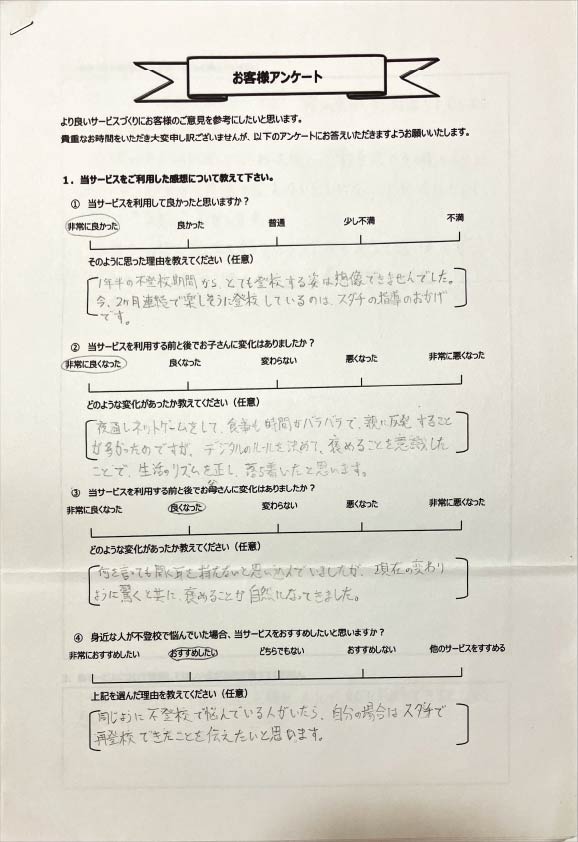 お客様アンケート
より良いサービスづくりにお客様のご意見を参考にしたいと思います。
貴重なお時間をいただき大変申し訳ございませんが、以下のアンケートにお答えいただきますようお願いいたします。
1. 当サービスをご利用した感想について教えて下さい。
① 当サービスを利用して良かったと思いますか?
非常に良かった 良かった 普通 少し不満 不満
そのように思った理由を教えてください(任意)
1年半の不登校期間から、とても登校する姿は想像できませんでした。
今、2ヶ月連続で楽しそうに登校しているのは、スダチの指導のおかげ
です。
② 当サービスを利用する前と後でお子さんに変化はありましたか?
非常に良くなった 良くなった 変わらない 悪くなった 非常に悪くなった
どのような変化があったか教えてください(任意)
夜通しネットゲームをして、食事も時間がバラバラで、親に反発すること
が多かったのですが、デジタルのルールを決めて、褒めることを意識した
ことで、生活のリズムを正し、落ち着いたと思います。
③ 当サービスを利用する前と後でお母さんに変化はありましたか?
非常に良くなった 良くなった 変わらない 悪くなった 非常に悪くなった
どのような変化があったか教えてください(任意)
何を言っても聞く耳を持たないと思い込んでいましたが、現在の変わり
ように驚くと共に、褒めることが自然になってきました。
④ 身近な人が不登校で悩んでいた場合、当サービスをおすすめしたいと思いますか?
非常におすすめしたい おすすめしたい どちらでもない おすすめしない 他のサービスをすすめる
上記を選んだ理由を教えてください(任意)
同じように不登校で悩んでいる人がいたら、自分の場合はスダチで
再登校できたことを伝えたいと思います。